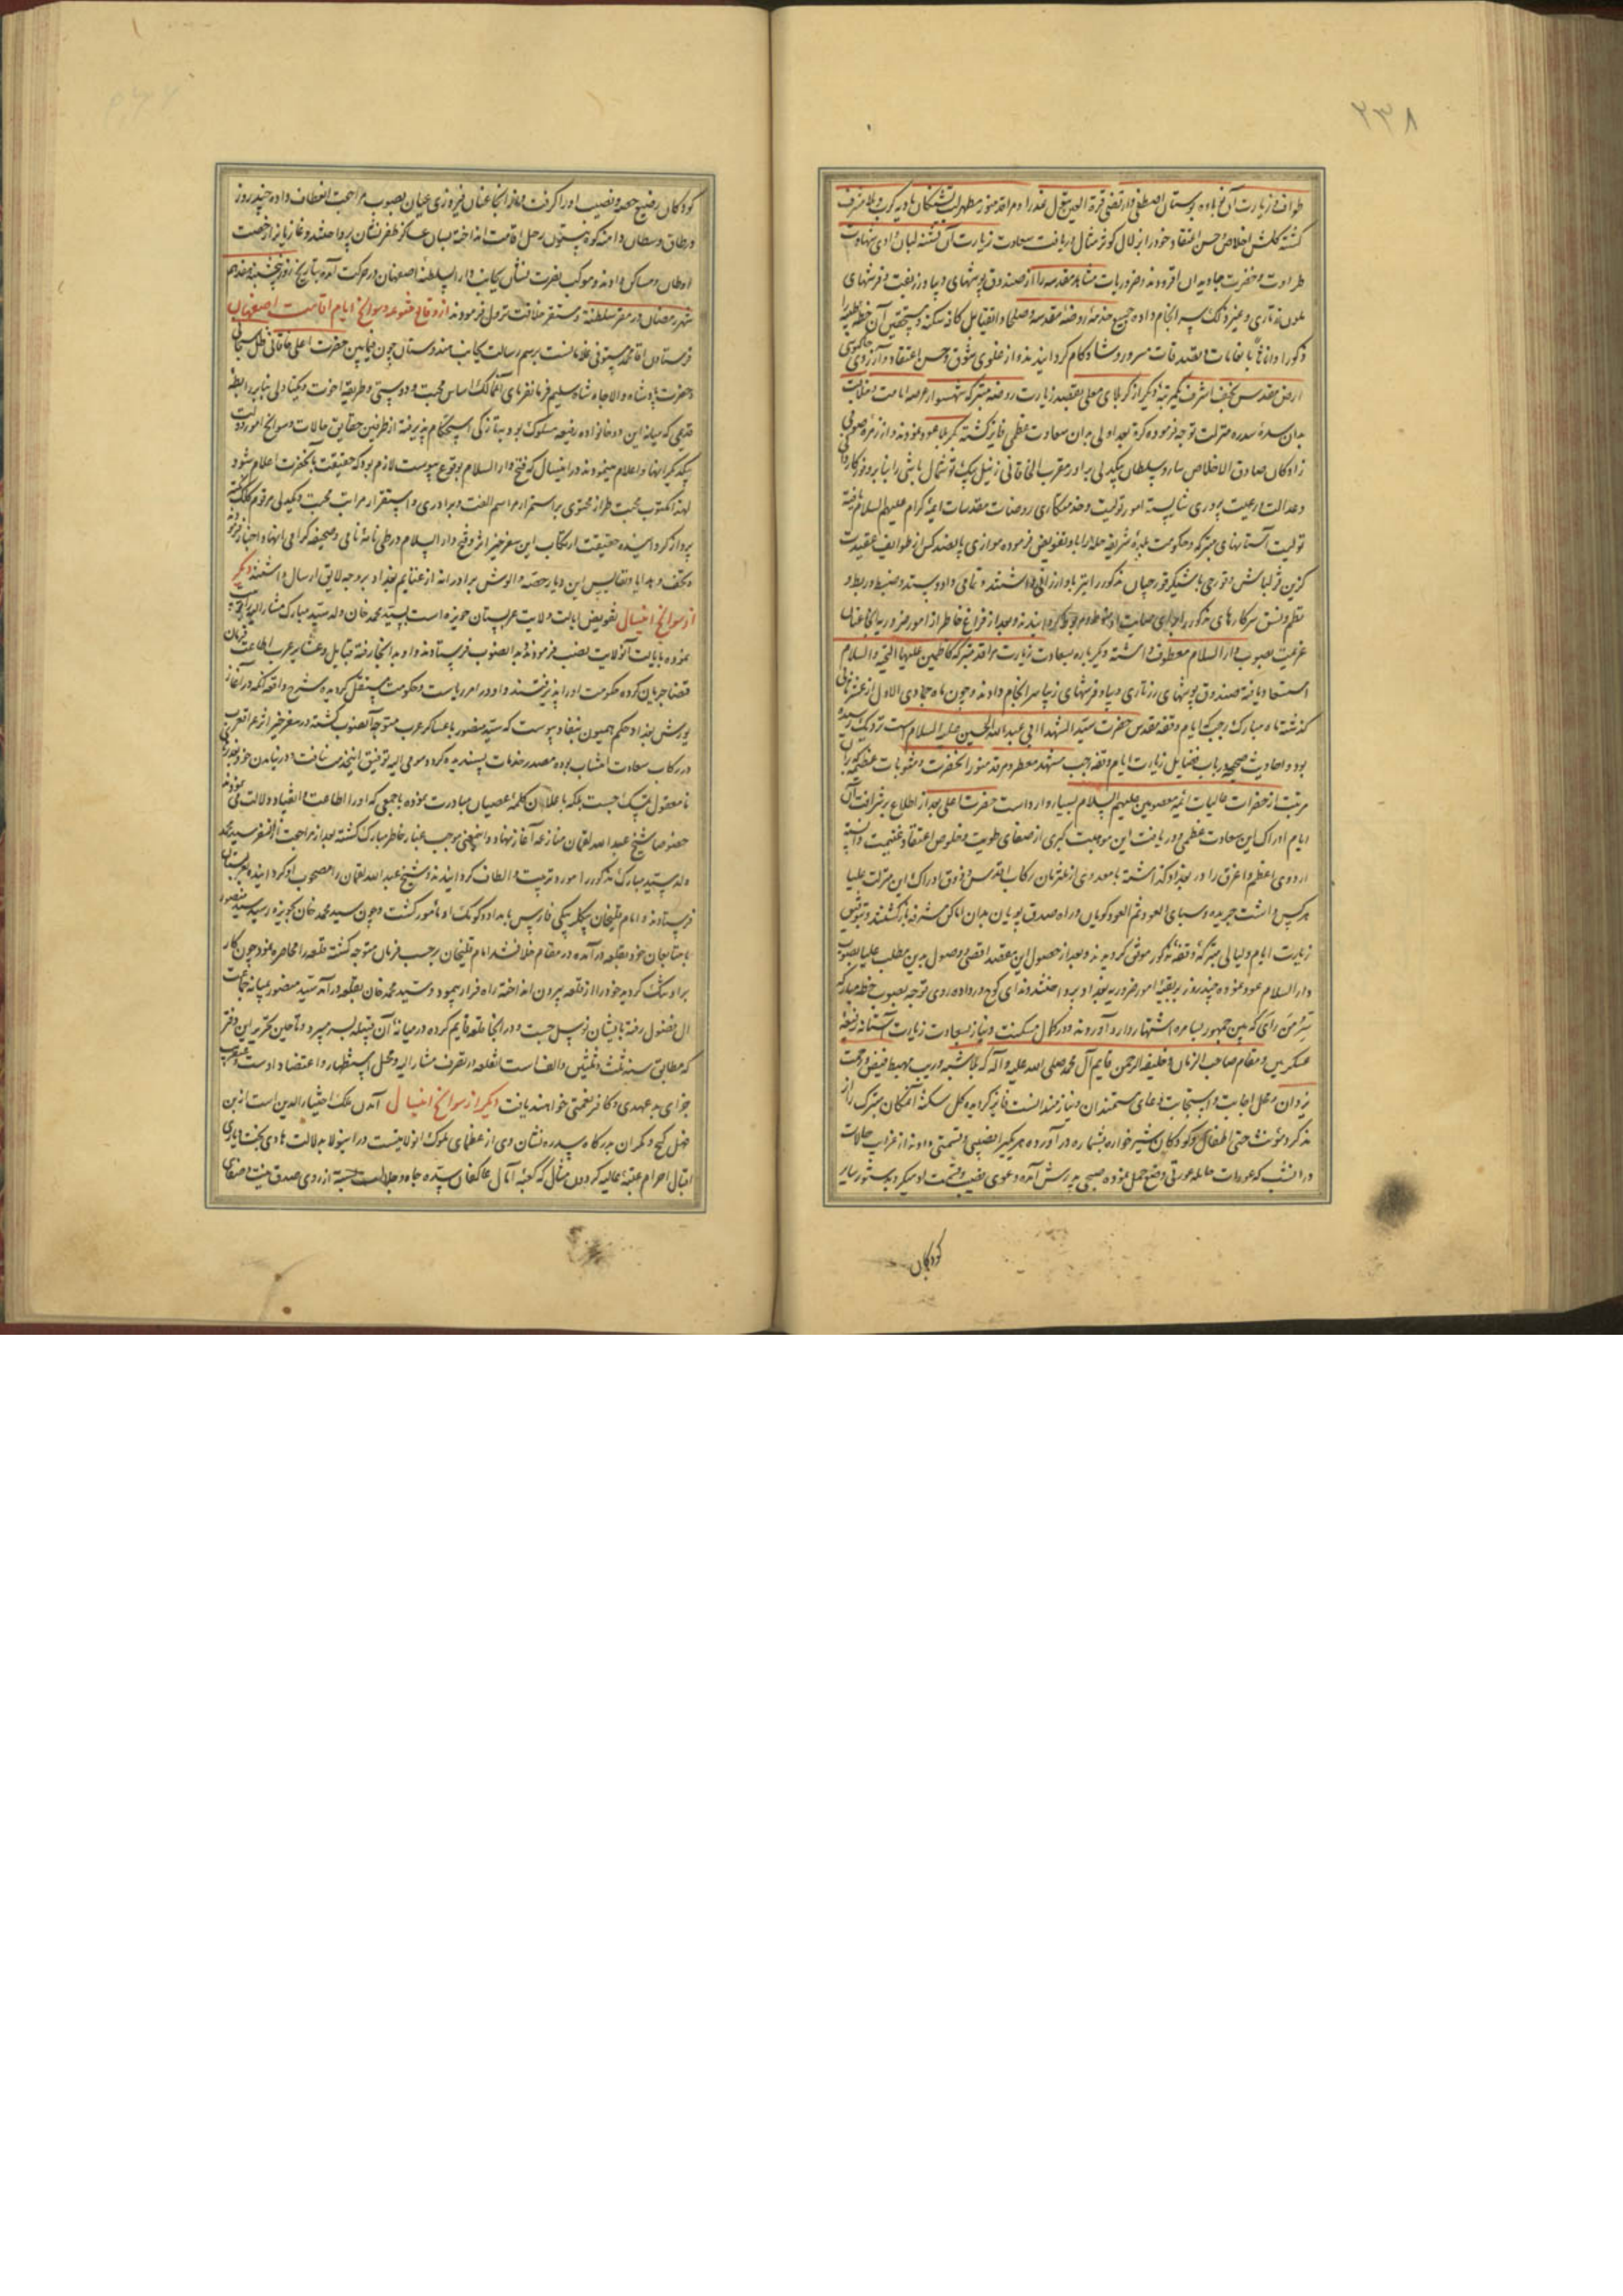 ۲۳۸
طواف و زیارت آن نوباوه بوستان مصطفی و مرتضی قرة العین بتول عذرا و مراقد منور مطهر لب تشنگان بادیه کرب و بلا مشرف
کشته کلشن اخلاص و حسن اعتقاد خود را بزلال کوثر مثال دریافت سعادت زیارت آن تشنه لبان وادی شهادت
طراوت و خضرت جاویدان افزودند و ضروریات مشاهد مقدسه را از صندوق پوشهای دیبا و زربفت و فرشهای
ملون تاری و غیر ذلک سرانجام داده جمیع خدمه روضه مقدسه و صلحا و اتقیا بل کافه سکنه و مستحقین آن خطه طیبه را
ذکورا و اناثا بانعامات و تصدقات مسرور و شادکام گردانیدند و از غلوی شوق و حسن اعتقاد و آرزوی
ارض مقدس نجف اشرف یکمرتبه دیگر از کربلای معلی بقصد زیارت روضه متبرکه شهسوار عرصه امامت
بدان سده سدره منزلت توجه فرموده کرة بعد اولی بدان سعادت عظمی فایز گشته بکربلا عود نمودند و از زمره صوفی
زادکان صادق الاخلاص ساروسلطان بیکدلی برادر مقرب الخاقانی زینل بیک توشمال باشی را بنابر وفور کاردانی
و عدالت و رعیت پروری شایسته امور تولیت و خدمتکاری روضات مقدسات ائمه کرام علیهم السلام یافته
تولیت آستانهای متبرکه و حکومت بلده شریفه حله را باو تفویض فرموده موازی پانصد کس از طوایف عقیدت
کزین قزلباش و قورچی باشیکری قورچیان مذکور را نیز باو ارزانی داشتند و تمامی داد و ستد و ضبط و ربط و
نظم و نسق سرکارهای مذکور را برای صایب او منوط و مربوط گردانیدند و بعد از فراغ خاطر از امور ضروریه آنجا عنان
عزیمت بصوب دارالسلام معطوف داشته دیگرباره بسعادت زیارت مراقد متبرکه کاظمین علیهما التحیة و السلام
استسعاد یافته صندوق پوشهای زرتاری دیبا و فرشهای زیبا سرانجام دادند و چون ماه جمادی الاول از عشر ثانی
گذشته ماه مبارک رجب که ایام وقفه مقدس حضرت سید الشهدا ابی عبدالله الحسین علیه السلام است نزدیک رسیده
بود و احادیث صحیحه در باب فضایل زیارت ایام وقفه رجب مشهد معطر و مرقد منور آنحضرت و مثوبات عظیمه که بران
مرتبت از حضرات عالیات ائمه معصومین علیهم السلام بسیار وارد است حضرت اعلی بعد از اطلاع بر شرافت آن
ایام ادراک این سعادت عظمی و دریافت این موهبت کبری از صفای طویت و خلوص اعتقاد غنیمت دانسته
اردوی اعظم و اغرق را در بغداد گذاشته با معدودی از ملتزمان رکاب اقدس و ذوق ادراک این منزلت علیا
هرکس داشت جریده و سبای العود ثم العود کویان در راه صدق پویان بدان اماکن مشرفه بازگشتند و بتوفیق
زیارت ایام و لیالی متبرکه وقفه مذکور موفق گردیدند و بعد از حصول این مقصد اقصی و وصول بدین مطلب علیا بصوب
دارالسلام عود نموده چند روز به بقیه امور ضروریه بغداد پرداختند و ندای کوچ در داده روی توجه بصوب خطه مبارکه
سر من رأی که بین جمهور بسامره اشتهار دارد آوردند و در کمال مسکنت و نیاز بسعادت زیارت آستانه رفیعه
عسکریین و مقام صاحب الزمان و خلیفة الرحمن قایم آل محمد صلی الله علیه و آله که بلا شبه و ریب مهبط فیض و رحمت
یزدان و محل اجابت و استجابت دعای مستمندان و نیازمندانست فایز گردیده کل سکنه آن مکان متبرک را از
مذکر و مؤنث حتی اطفال و کودکان شیرخواره بشماره در آورده هر یک را نصیبی و قسمتی دادند از غرایب حالات
در آنشب که عورات حامله عورتی وضع حمل نموده صبحی بپرسش آمده دعوی نصیب و قسمت او میکرد بدستور سایر
کودکان
کودکان رضیع حصه و نصیب او را گرفت و از آنجا عنان فیروزی عیان بصوب مراجعت انعطاف داده چند روز
در طاق وسطان و دامنه کوه بیستون رحل اقامت انداخته بسان عساکر ظفرنشان پرداختند و غازیانرا رخصت
اوطان و مساکن دادند و موکب نصرت نشان بجانب دارالسلطنه اصفهان در حرکت آمده بتاریخ روز پنجشنبه هفدهم
شهر رمضان در مقر سلطنه و مستقر خلافت نزول فرمودند از وقایع متنوعه و سوانح ایام اقامت اصفهان
فرستادن آقا محمد مستوفی غلامانست برسم رسالت بجانب هندوستان چون فیمابین حضرت اعلی خاقانی ظل سبحانی
و حضرت پادشاه والاجاه شاه سلیم فرمانفرمای آنممالک اساس محبت و دوستی و طریقه اخوت و یکتادلی بنابر رابطه
قدیمی که میانه این دو خانواده رفیعه مسلوک بود بتازگی استحکام پذیرفته از طرفین حقایق حالات و سوانح امور دولت
بیکدیگر انها و اعلام مینمودند در اینسال که فتح دارالسلام بوقوع پیوست لازم بود که حقیقت بآنحضرت اعلام شود
لهذا مکتوب محبت طراز محتوی بر استمرار مراسم الفت و برادری و استقرار مراتب محبت و یکدلی مرقوم کلک
پرداز گردانیده حقیقت ارتکاب این سفر خیر اثر و فتح دارالسلام در طی نامه نامی و صحیفه گرامی انها و اخبار فرمودند
و تحف و هدایا و نفایس این دیار حصه و الوش برادرانه از غنایم بغداد بر وجه لایق ارسال داشتند دیگر
از سوانح اینسال تفویض ایالت ولایت عربستان حویزه است بسید محمد خان ولد سید مبارک مشارالیه را تربیت
نموده بایالت آنولایت نصب فرموده بدانصوب فرستادند و او بدانجا رفته قبایل و عشایر عرب اطاعت فرمان
قضا جریان کرده حکومت او را پذیرفتند و او در امر ریاست و حکومت مستقل گردیده شرح واقعه آنکه در آغاز
یورش بغداد حکم همیون بنفاد پیوست که سید منصور با عساکر عرب متوجه آنصوب گشته در سفر خیر اثر عراق عرب
در رکاب سعادت انتساب بوده مصدر خدمات پسندیده گردد مومی الیه توفیق اینخدمت نیافت در نیامدن خود بعذرهای
نامعقول متمسک جست بلکه باعلان کلمه عصیان مبادرت نموده با جمعی که او را اطاعت و انقیاد دلالت می نمودند
خصوصا شیخ عبدالله لقمان منازعه آغاز نهاد و اینمعنی موجب غبار خاطر مبارک گشته بعد از مراجعت از آنسفر سید محمد
ولد سید مبارک مذکور را مورد تربیت و الطاف گردانیدند و شیخ عبدالله لقمان را مصحوب او گردانیده بعربستان
فرستادند و امام قلیخان بیکلربیکی فارس بامداد و کومک او مأمور گشت و چون سید محمد خان بحویزه رسید سید منصور
با متابعان خود بقلعه در آمده در مقام خلاف شد امام قلیخان برحسب فرمان متوجه گشته قلعه را محاصره نمود چون کار
بر او تنگ گردید خود را از قلعه بیرون انداخته راه فرار پیمود و سید محمد خان بقلعه در آمد سید منصور بمیانه جماعت
آل فضول رفته بایشان توسل جست و در آنجا قلعه قایم کرده در میانه آن قبیله بسر میبرد و تا حین تحریر این دفتر
که مطابق سنه ثلث و ثلثین و الف است آنقلعه در تصرف مشارالیه و محل استظهار و اعتضاد اوست و عنقریب
جزای بدعهدی و کافر نعمتی خواهند یافت دیگر از سوانح اینسال آمدن ملک اختیارالدین است از بن
فضل کیج و مکران بدرگاه سدره نشان وی از عظمای ملوک آنولایتست در اینولا بدلالت هادی بخت و یاری
اقبال احرام عتبه عالیه گردون مثال که کعبه آمال عاکفان سده جاه و جلالست بسته از روی صدق نیت و صفای